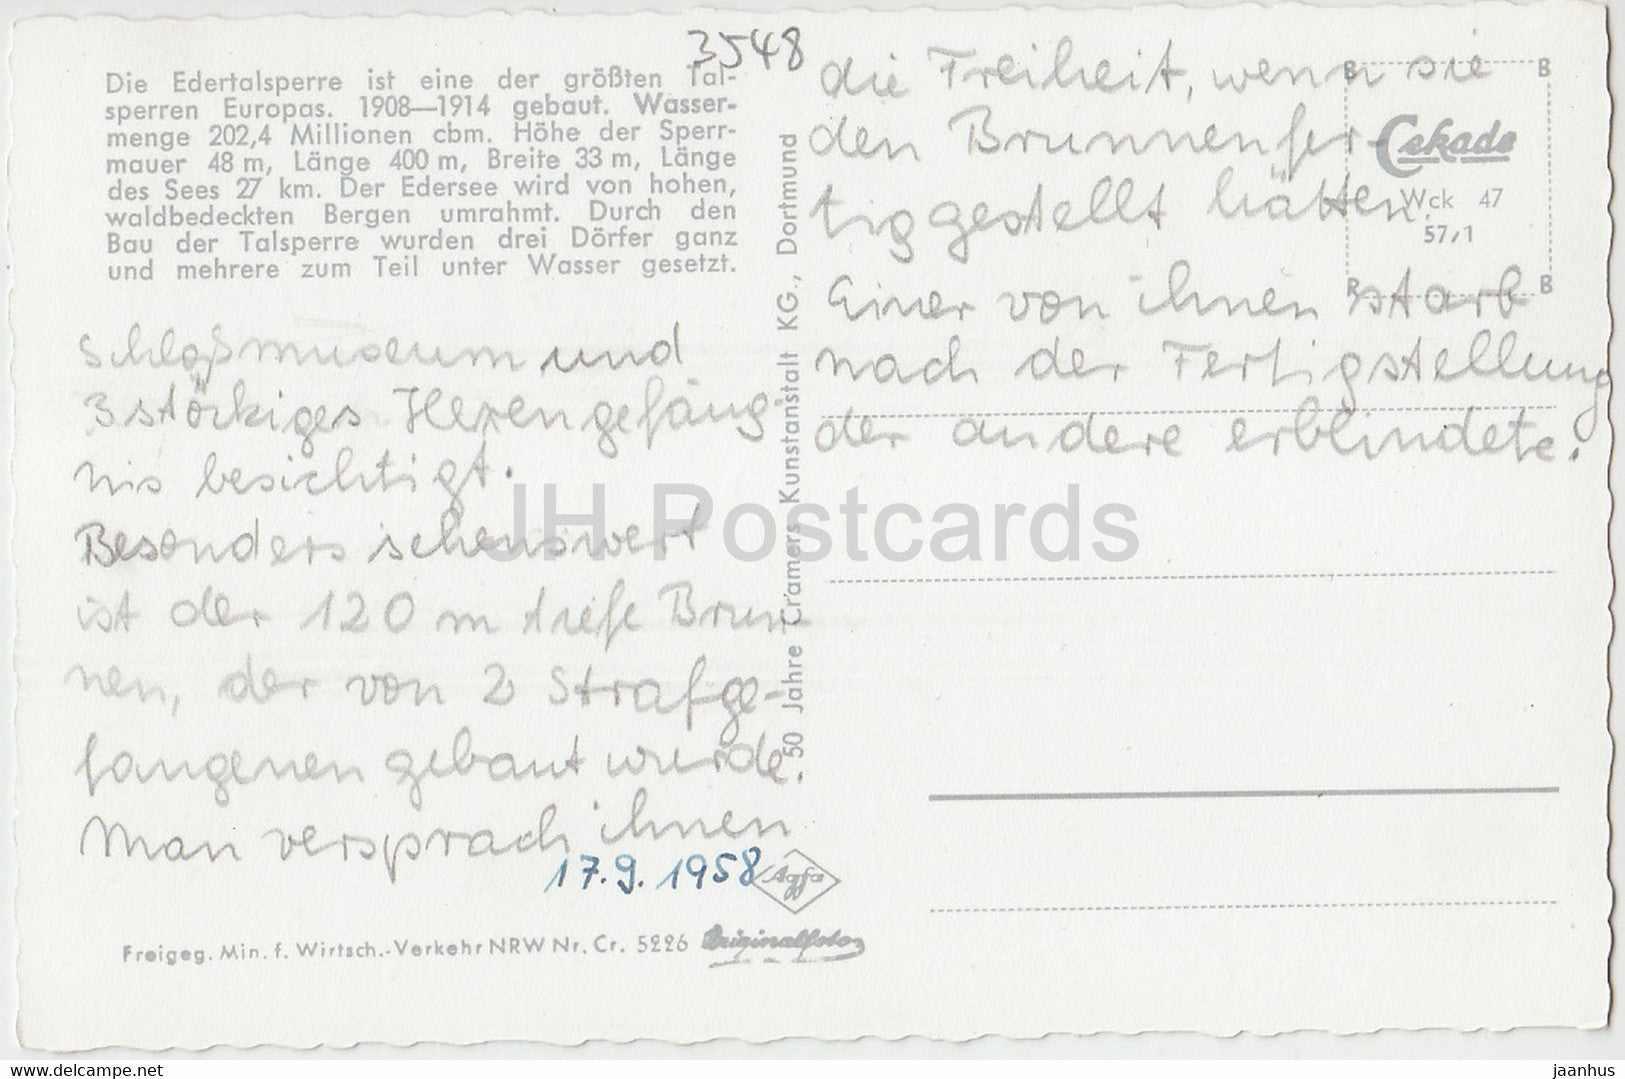 3548
Die Edertalsperre ist eine der größten Tal-
sperren Europas. 1908—1914 gebaut. Wasser-
menge 202,4 Millionen cbm. Höhe der Sperr-
mauer 48 m, Länge 400 m, Breite 33 m, Länge
des Sees 27 km. Der Edersee wird von hohen,
waldbedeckten Bergen umrahmt. Durch den
Bau der Talsperre wurden drei Dörfer ganz
und mehrere zum Teil unter Wasser gesetzt.
Schloßmuseum und
3 störkiges Hexengefäng
nis besichtigt.
Besonders sehenswert
ist der 120 m tiefe Brun-
nen, der von 2 Strafge-
fangenen gebaut wurde.
Man versprach ihnen
17.9.1958
Agfa
Originalfoto
Freigeg. Min. f. Wirtsch.-Verkehr NRW Nr. Cr. 5226
50 Jahre Cramers Kunstanstalt KG., Dortmund
die Freiheit, wenn sie
den Brunnen fer-
tiggestellt hätten.
Einer von ihnen starb
nach der Fertigstellung
der andere erblindete.
B B
Cekade
Wck 47
57/1
R B
JH Postcards
delcampe.net
jaanhus